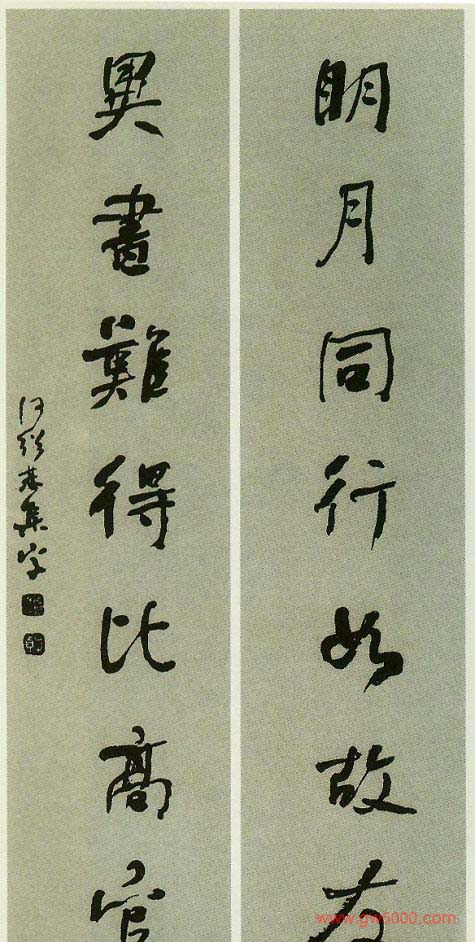 明月同行如故友
異書難得比高官
何紹基集字
www.gws000.com